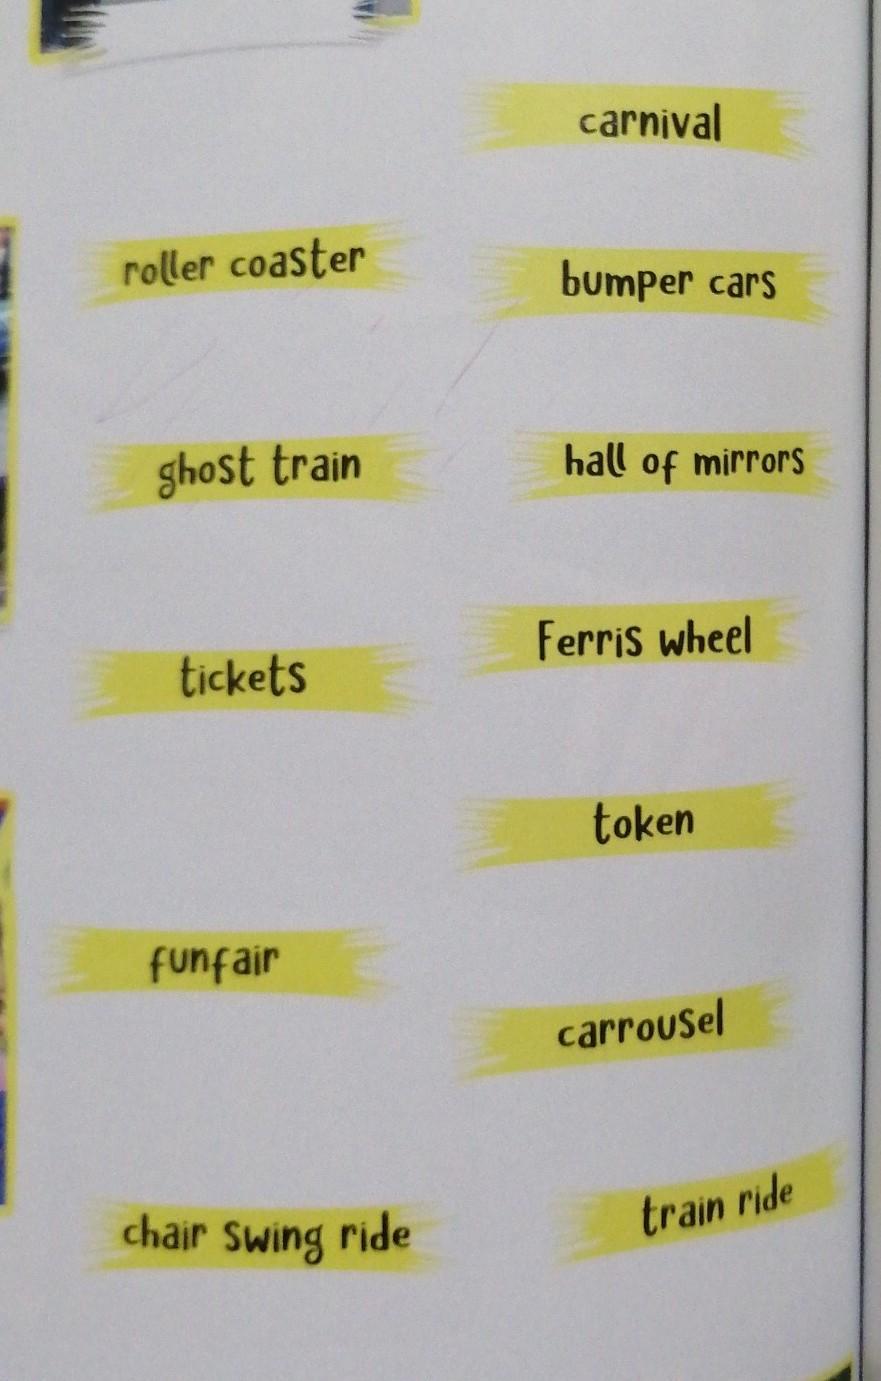 carnival
roller coaster
bumper cars
ghost train
hall of mirrors
Ferris wheel
tickets
token
funfair
carrousel
train ride
chair swing ride